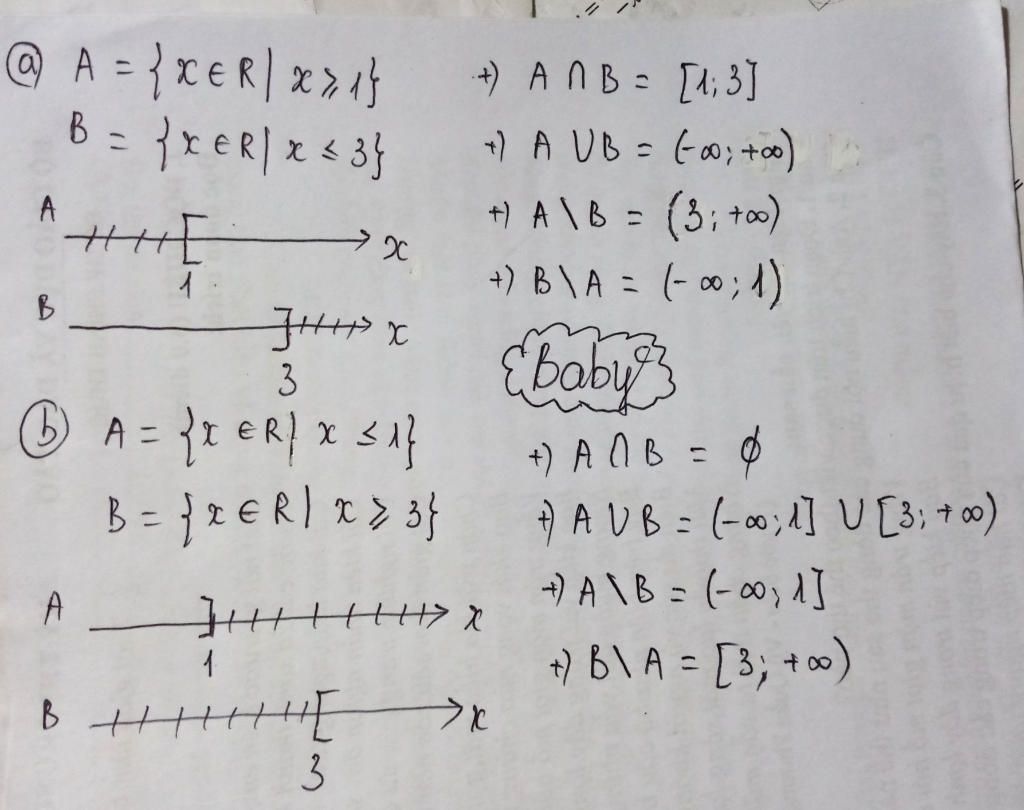 a) A = {x ∈ R | x ⩾ 1}
B = {x ∈ R | x ≤ 3}
A
[
x
1
B
]
x
3
+) A ∩ B = [1; 3]
+) A ∪ B = (-∞; +∞)
+) A \ B = (3; +∞)
+) B \ A = (-∞; 1)
Baby
b) A = {x ∈ R | x ≤ 1}
B = {x ∈ R | x ⩾ 3}
A
]
x
1
B
[
x
3
+) A ∩ B = ∅
+) A ∪ B = (-∞; 1] ∪ [3; +∞)
+) A \ B = (-∞; 1]
+) B \ A = [3; +∞)